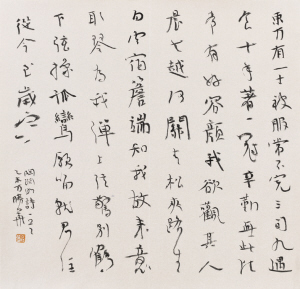 東方有一士被服常不完三旬九遇
食十年著一冠辛勤無此比
常有好容顏我欲觀其人
晨去越河關青松夾路生
白雲宿簷端知我故來意
取琴為我彈上弦驚別鶴
下弦操孤鸞願留就君住
從今至歲寒
陶淵明詩一首